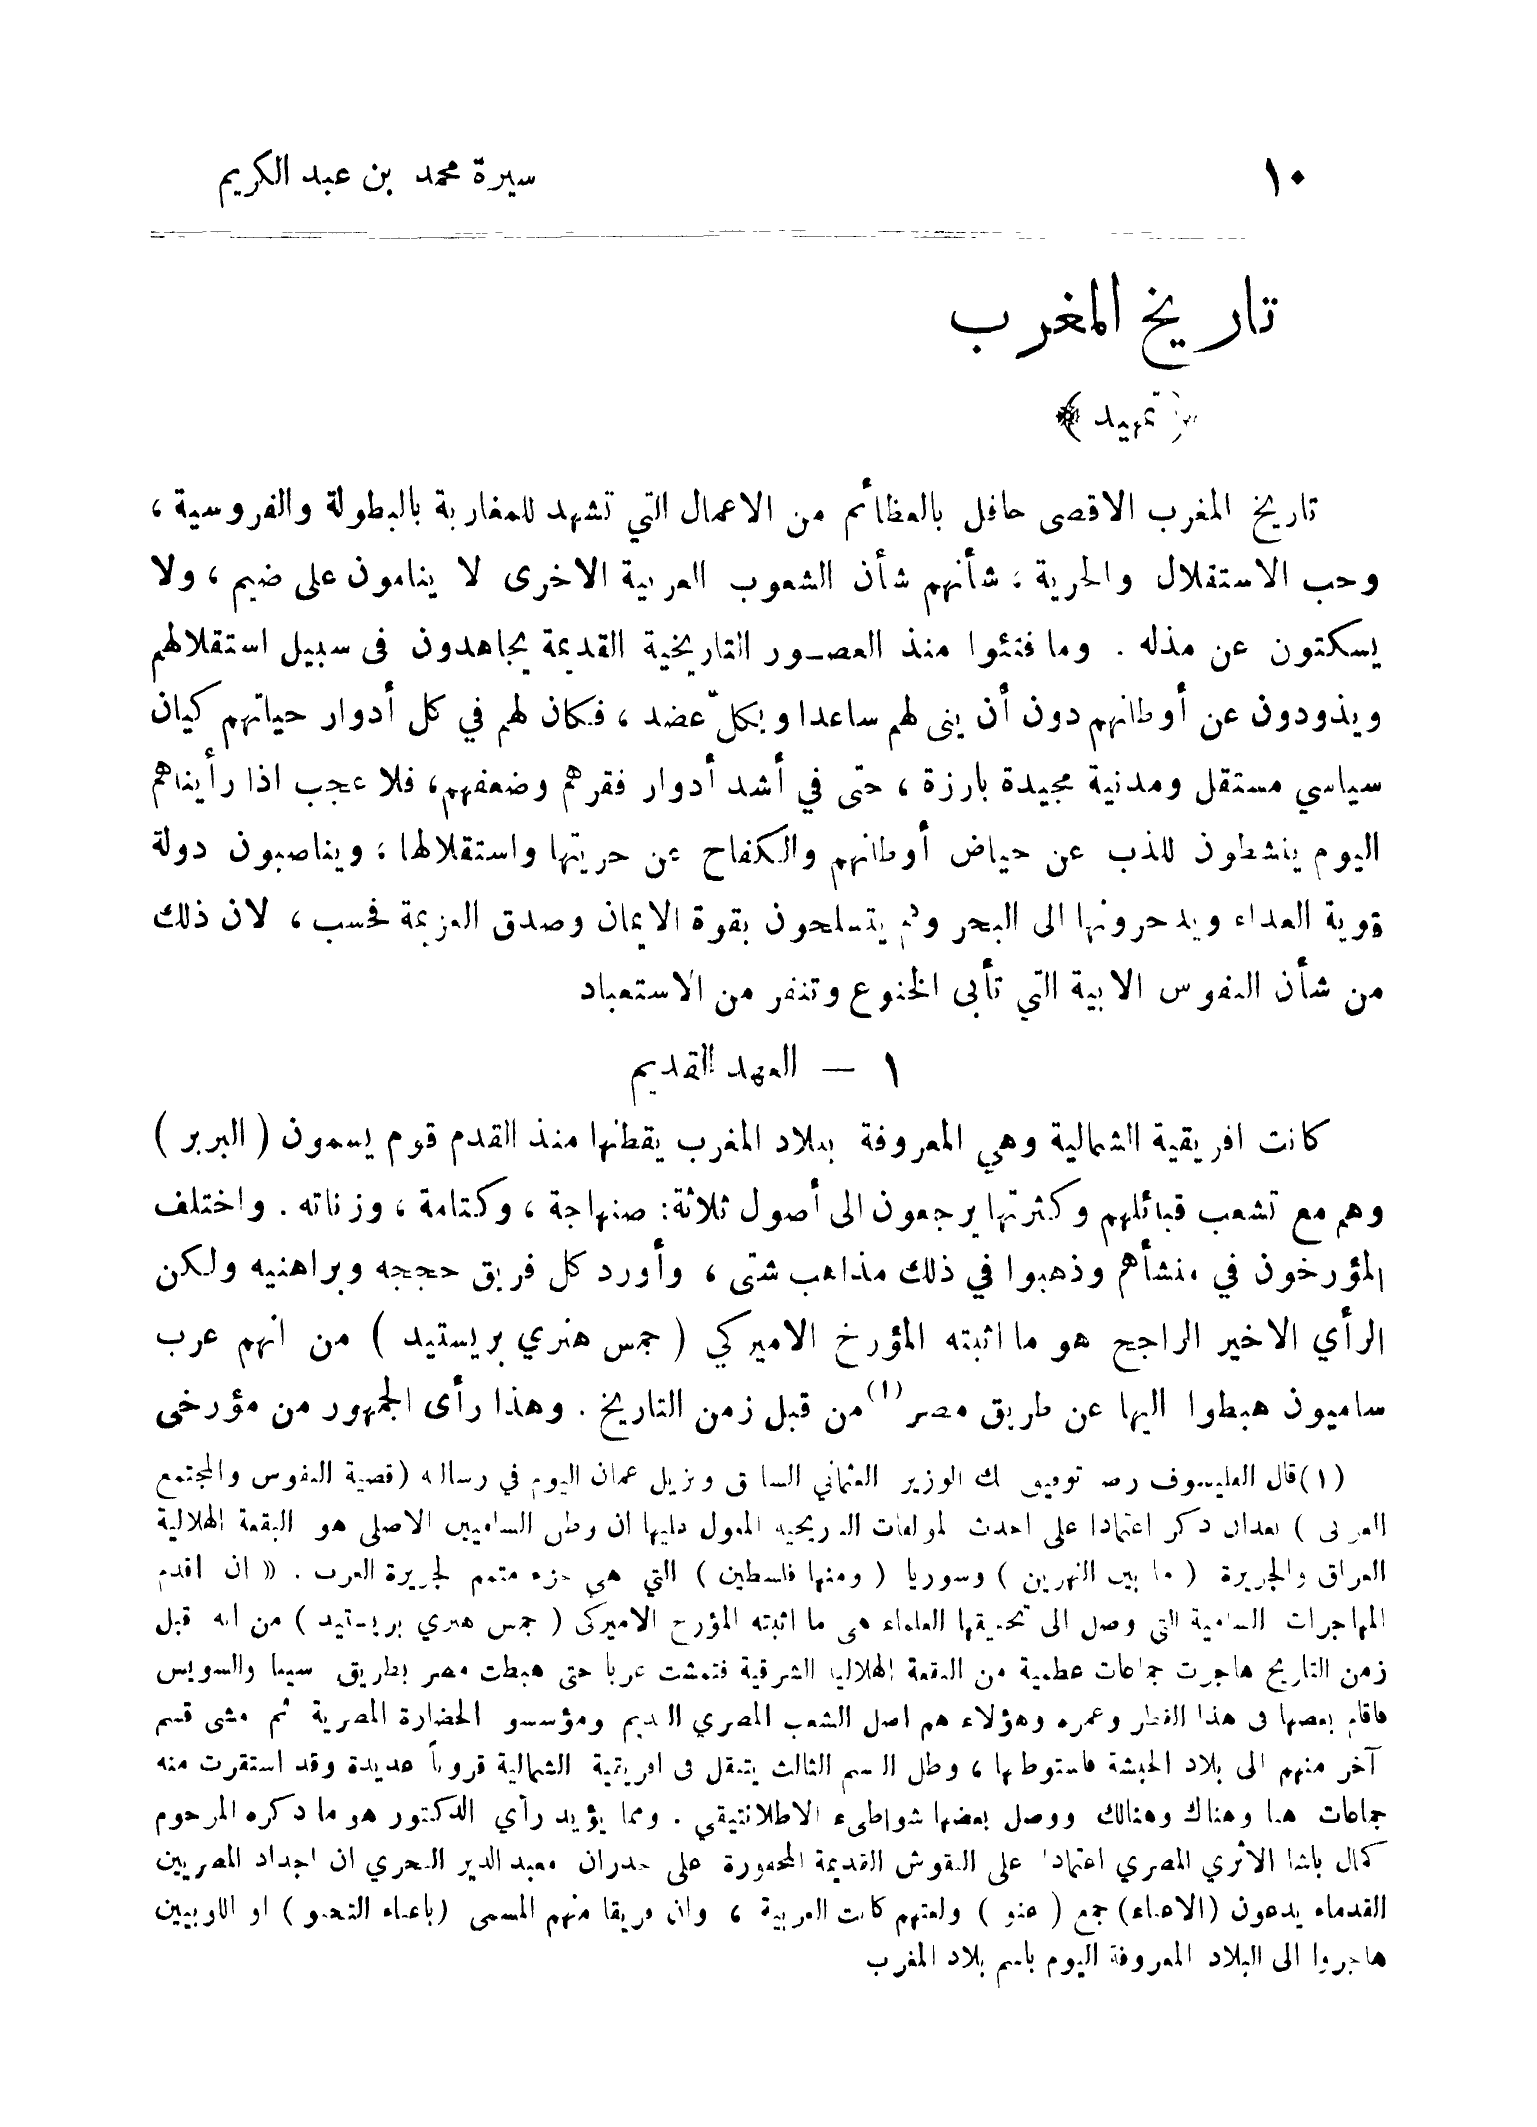 ١٠ سيرة محمد بن عبد الكريم
تاريخ المغرب
﴿ تمهيد ﴾
تاريخ المغرب الاقصى حافل بالعظائم من الاعمال التي تشهد للمغاربة بالبطولة والفروسية ،
وحب الاستقلال والحرية ، شأنهم شأن الشعوب العربية الاخرى لا ينامون على ضيم ، ولا
يسكتون عن مذله . وما فتئوا منذ العصور التاريخية القديمة يجاهدون فى سبيل استقلالهم
ويذودون عن أوطانهم دون أن ينى لهم ساعدا ويكلّ عضد ، فكان لهم في كل أدوار حياتهم كيان
سياسي مستقل ومدنية مجيدة بارزة ، حتى في أشد أدوار فقرهم وضعفهم، فلا عجب اذا رأيناهم
اليوم ينشطون للذب عن حياض أوطانهم والكفاح عن حريتها واستقلالها ، ويناصبون دولة
قوية العداء ويدحرونها الى البحر وهم يتسلحون بقوة الايمان وصدق العزيمة فحسب ، لان ذلك
من شأن النفوس الابية التي تأبى الخنوع وتنفر من الاستعباد
١ — العهد القديم
كانت افريقية الشمالية وهي المعروفة ببلاد المغرب يقطنها منذ القدم قوم يسمون ( البربر )
وهم مع تشعب قبائلهم وكثرتها يرجعون الى أصول ثلاثة: صنهاجة ، وكتامة ، وزناته . واختلف
المؤرخون في منشأهم وذهبوا في ذلك مذاهب شتى ، وأورد كل فريق حججه وبراهنيه ولكن
الرأي الاخير الراجح هو ما اثبته المؤرخ الاميركي ( جمس هنري بريستيد ) من انهم عرب
ساميون هبطوا اليها عن طريق مصر (١) من قبل زمن التاريخ . وهذا رأى الجمهور من مؤرخى
(١) قال الفيلسوف رضا توفيق بك الوزير العثماني السابق ونزيل عمان اليوم في رسالته (قضية النفوس والمجتمع
العربى ) بعدان ذكر اعتمادا على احدث المولفات التاريخيه المعول عليها ان وطن الساميين الاصلى هو البقعة الهلالية
العراق والجزيرة ( ما بين النهرين ) وسوريا ( ومنها فلسطين ) التي هي جزء متمم لجزيرة العرب . « ان اقدم
المهاجرات السامية التى وصل الى تحقيقها العلماء هى ما اثبته المؤرخ الاميركى ( جمس هنري بريستيد ) من انه قبل
زمن التاريخ هاجرت جماعات عظيمة من البقعة الهلالية الشرقية فتمشت غربا حتى هبطت مصر بطريق سينا والسويس
فاقام بعضها فى هذا القطر وعمره وهؤلاء هم اصل الشعب المصري القديم ومؤسسو الحضارة المصرية ثم مشى قسم
آخر منهم الى بلاد الحبشة فاستوطنها ، وظل القسم الثالث يتنقل فى افريقية الشمالية قروناً عديدة وقد استقرت منه
جماعات هنا وهناك وهنالك ووصل بعضها شواطىء الاطلانتيقي . ومما يؤيد رأي الدكتور هو ما ذكره المرحوم
كمال باشا الاثري المصري اعتمادا على النقوش القديمة المحفورة على جدران معبد الدير البحري ان اجداد المصريين
القدماء يدعون (الاعناء) جمع ( عنو ) ولغتهم كانت العربية ، وان فريقا منهم المسمى (باعناء التحنو ) او اللوبيين
هاجروا الى البلاد المعروفة اليوم باسم بلاد المغرب